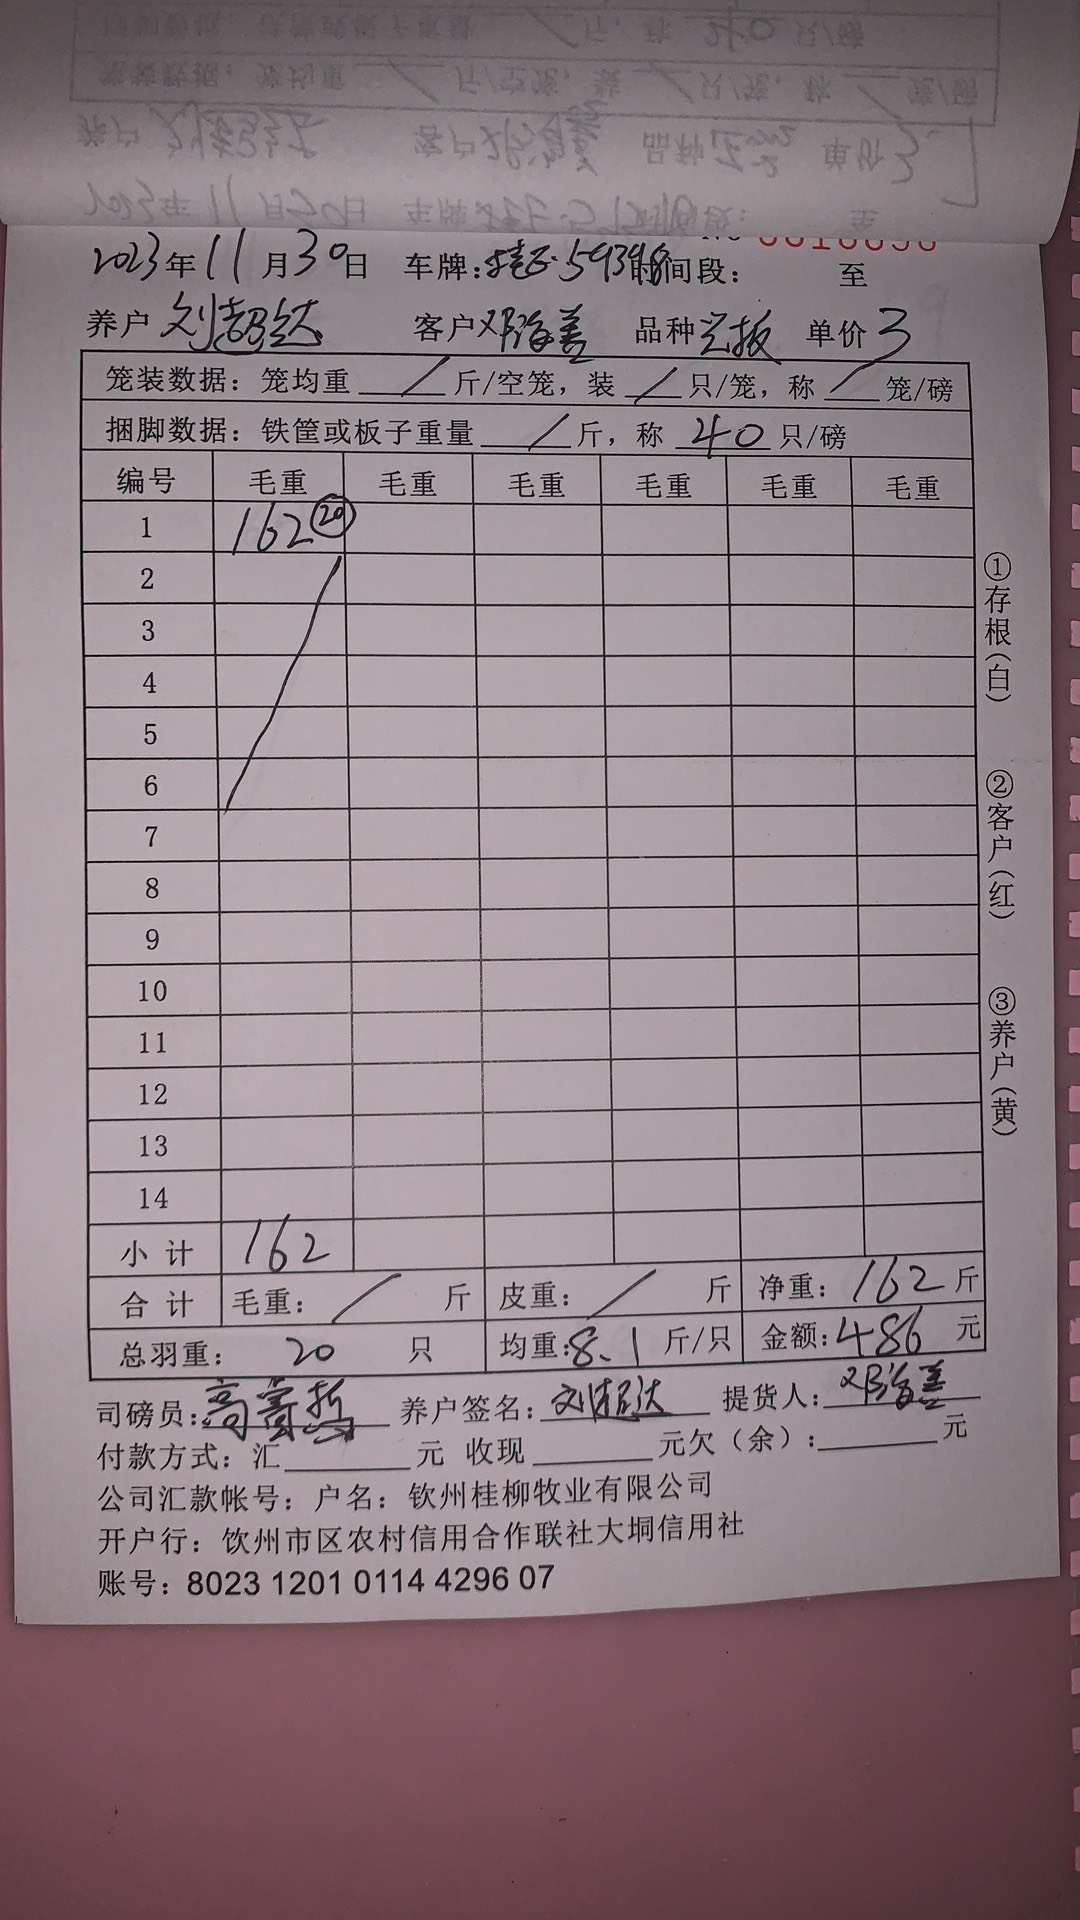 2023年11月30日 车牌:桂E·59398时间段: 至
养户 刘超达 客户 邓海善 品种 单价 3
笼装数据:笼均重 / 斤/空笼,装 / 只/笼,称 / 笼/磅
捆脚数据:铁筐或板子重量 / 斤,称 40 只/磅
编号 毛重 毛重 毛重 毛重 毛重 毛重
1 162 20
2
3
4
5
6
7
8
9
10
11
12
13
14
小计 162
合计 毛重: / 斤 皮重: / 斤 净重: 162 斤
总羽重: 20 只 均重:8.1 斤/只 金额:486 元
司磅员: 养户签名:刘超达 提货人:邓海善
付款方式:汇 元 收现 元欠(余): 元
公司汇款帐号:户名:钦州桂柳牧业有限公司
开户行:饮州市区农村信用合作联社大垌信用社
账号:8023 1201 0114 4296 07
①存根(白)
②客户(红)
③养户(黄)